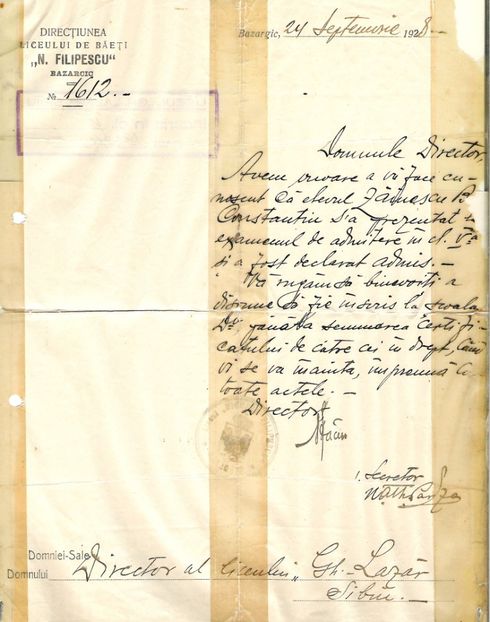 DIRECȚIUNEA
LICEULUI DE BĂEȚI
„N. FILIPESCU"
BAZARGIC
№ 1612.-
Bazargic, 24 Septemvrie 1928.-
Domnule Director,
Avem onoare a vă face cu-
noscut că elevul Zăinescu B.
Constantin s'a prezentat la
examenul de admitere în cl. Va
și a fost declarat admis. -
Vă rugăm să binevoiți a
dispune să fie înscris la școala
Dv. până la semnarea certifi-
catului de către cei în drept, când
vi se va înainta, împreună cu
toate actele. -
Director
Secretar
Domniei-Sale
Domnului Director al Liceului „Gh. Lazăr
Sibiu. -